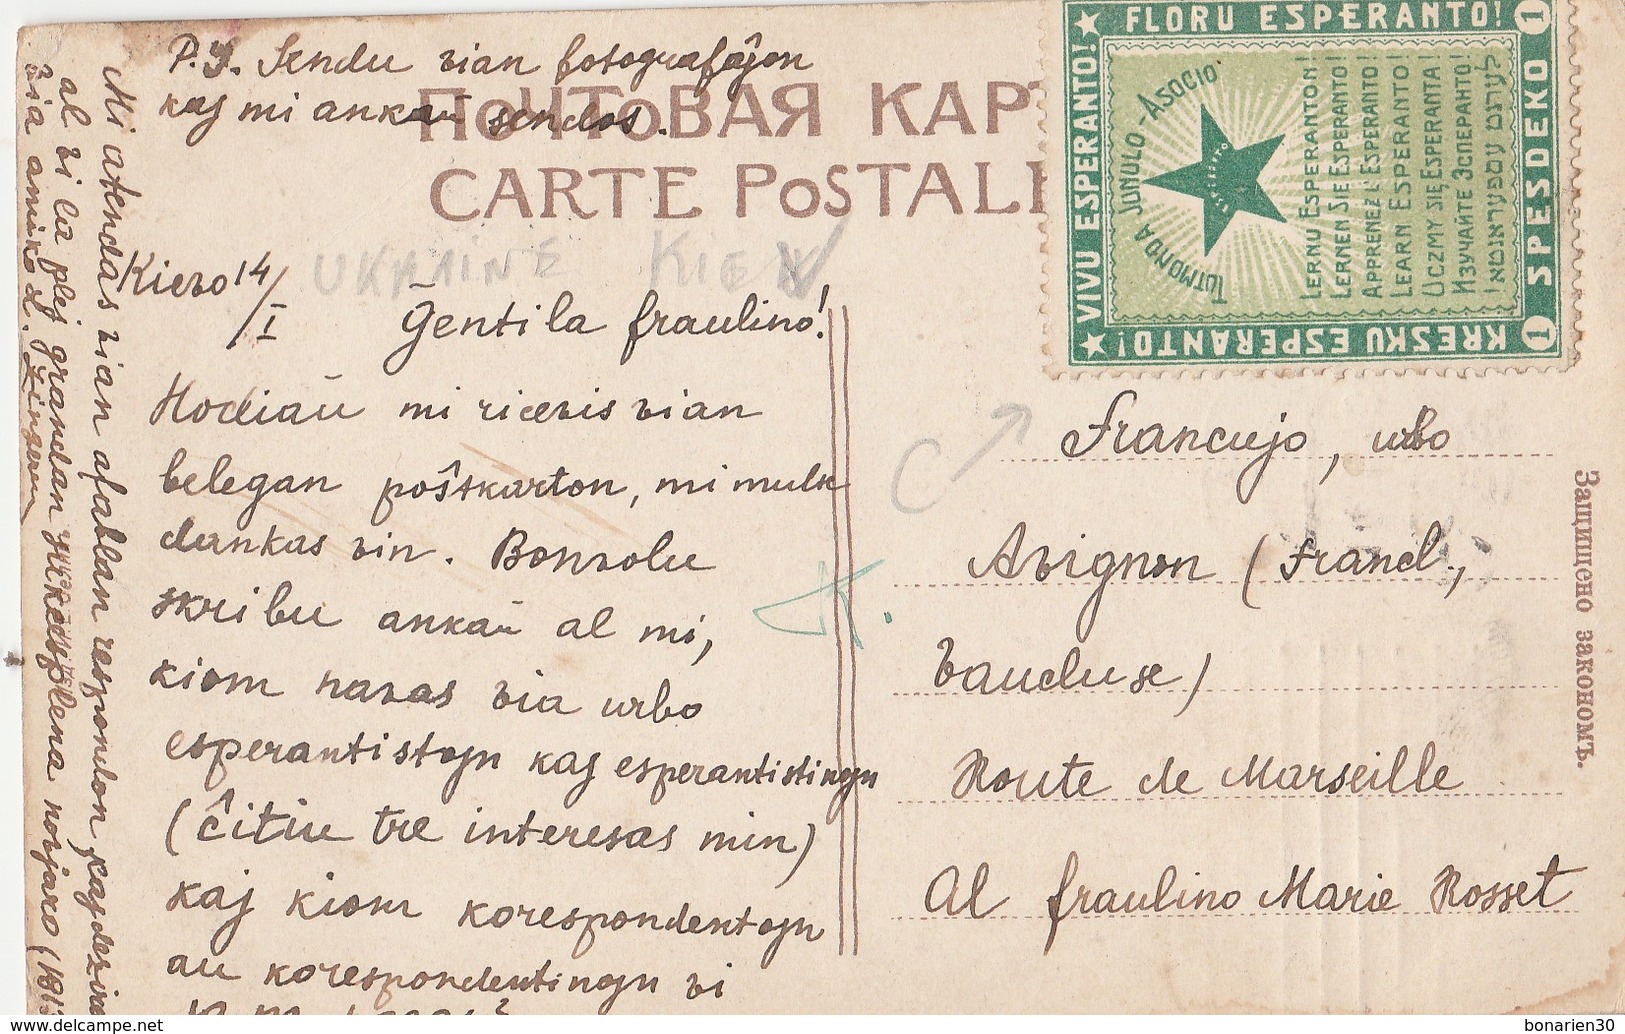 P.S. Sendu vian fotografaĵon
kaj mi ankaŭ sendos.
ПОЧТОВАЯ КАРТ
CARTE POSTALE
UKRAINE KIEV
Kievo 14/I
Ĝentila fraulino!
Hodiaŭ mi ricevis vian
belegan poŝtkarton, mi multe
dankas vin. Bonvolu
skribu ankaŭ al mi,
kiom navas via urbo
esperantistojn kaj esperantistinojn
(ĉi tiu tre interesas min)
kaj kiom korespondentojn
au korespondentinojn vi
Mi atendas vian afablan respondon kaj dezira
al vi la plej grandan
plena novjaro (1913
Via amiko L. Zinger
FLORU ESPERANTO!
VIVU ESPERANTO!
KRESKU ESPERANTO!
1 SPESDEKO 1
TUTMONDA JUNULO-ASOCIO
ESPERANTO
LERNU ESPERANTON!
LERNEN SIE ESPERANTO!
APPRENEZ L'ESPERANTO!
LEARN ESPERANTO!
UCZMY SIĘ ESPERANTA!
ИЗУЧАЙТЕ ЭСПЕРАНТО!
לערנט עספעראנטא!
C
K.
Francujo, urbo
Avignon (Francl.,
Vaucluse)
Route de Marseille
Al fraulino Marie Rosset
Защищено закономъ.
www.delcampe.net
bonarien30